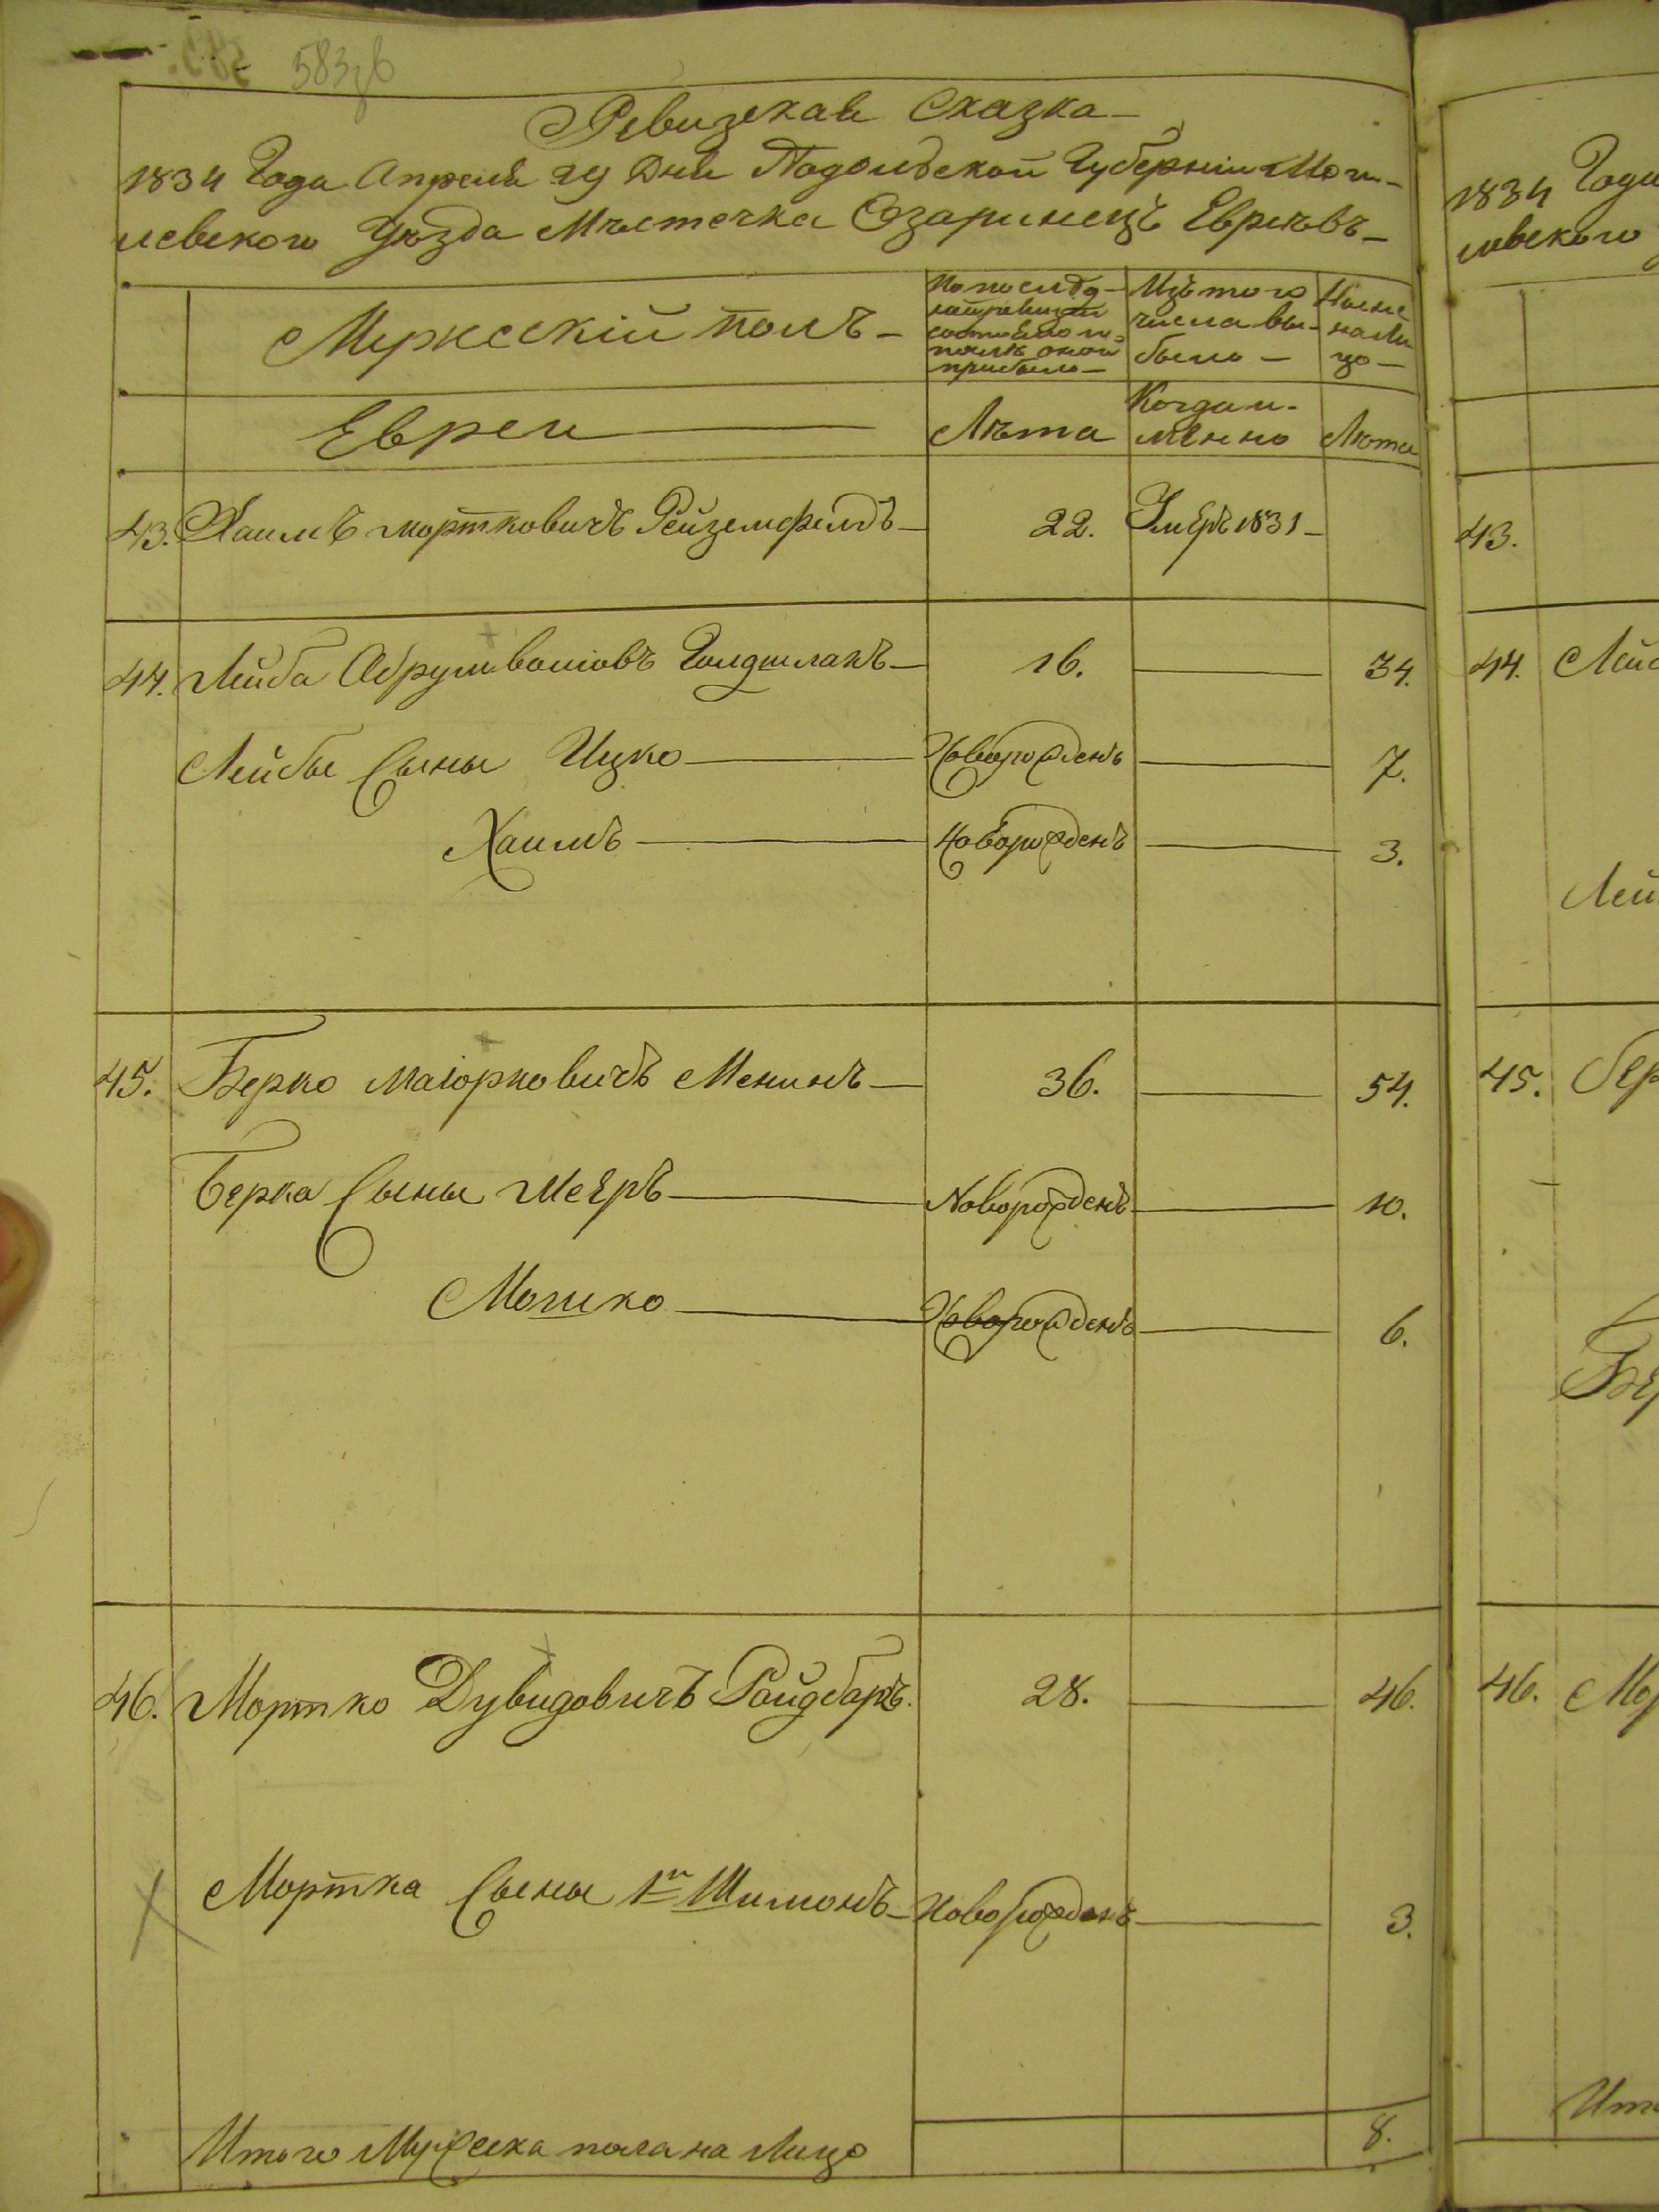 583 об
Ревизская Сказка
1834 Года Апреля 29 Дня Подольской Губернии Моги-
левского Уезда Мѣстечка Озаринецъ Евреевъ
Мужескій полъ
По послѣд-
ней ревизіи
состояло и
послѣ оной
прибыло
Изъ того
числа вы-
было
Ныне
на ли
цо
Евреи
Лѣта
Когда и-
менно
Лѣта
43. Хаимъ Мортковичъ Рейземфелдъ 22. Умеръ 1831
44. Лейба Абрумвошовъ Голдшлакъ 16. 34.
Лейбы Сыны Ицко Новорожденъ 7.
Хаимъ Новорожденъ 3.
45. Берко Маіорковичъ Менинъ 36. 54.
Берка Сыны Мееръ Новорожденъ 10.
Мошко Новорожденъ 6.
46. Мортко Дувидовичъ Ройдбаръ. 28. 46.
Мортка Сыны 1й Шимонъ Новорожденъ 3.
Итого Мужеска пола на Лицо 8.
1834 Года
левского
43.
44. Лей
Лей
45. Бер
Бер
46. Мор
Ито